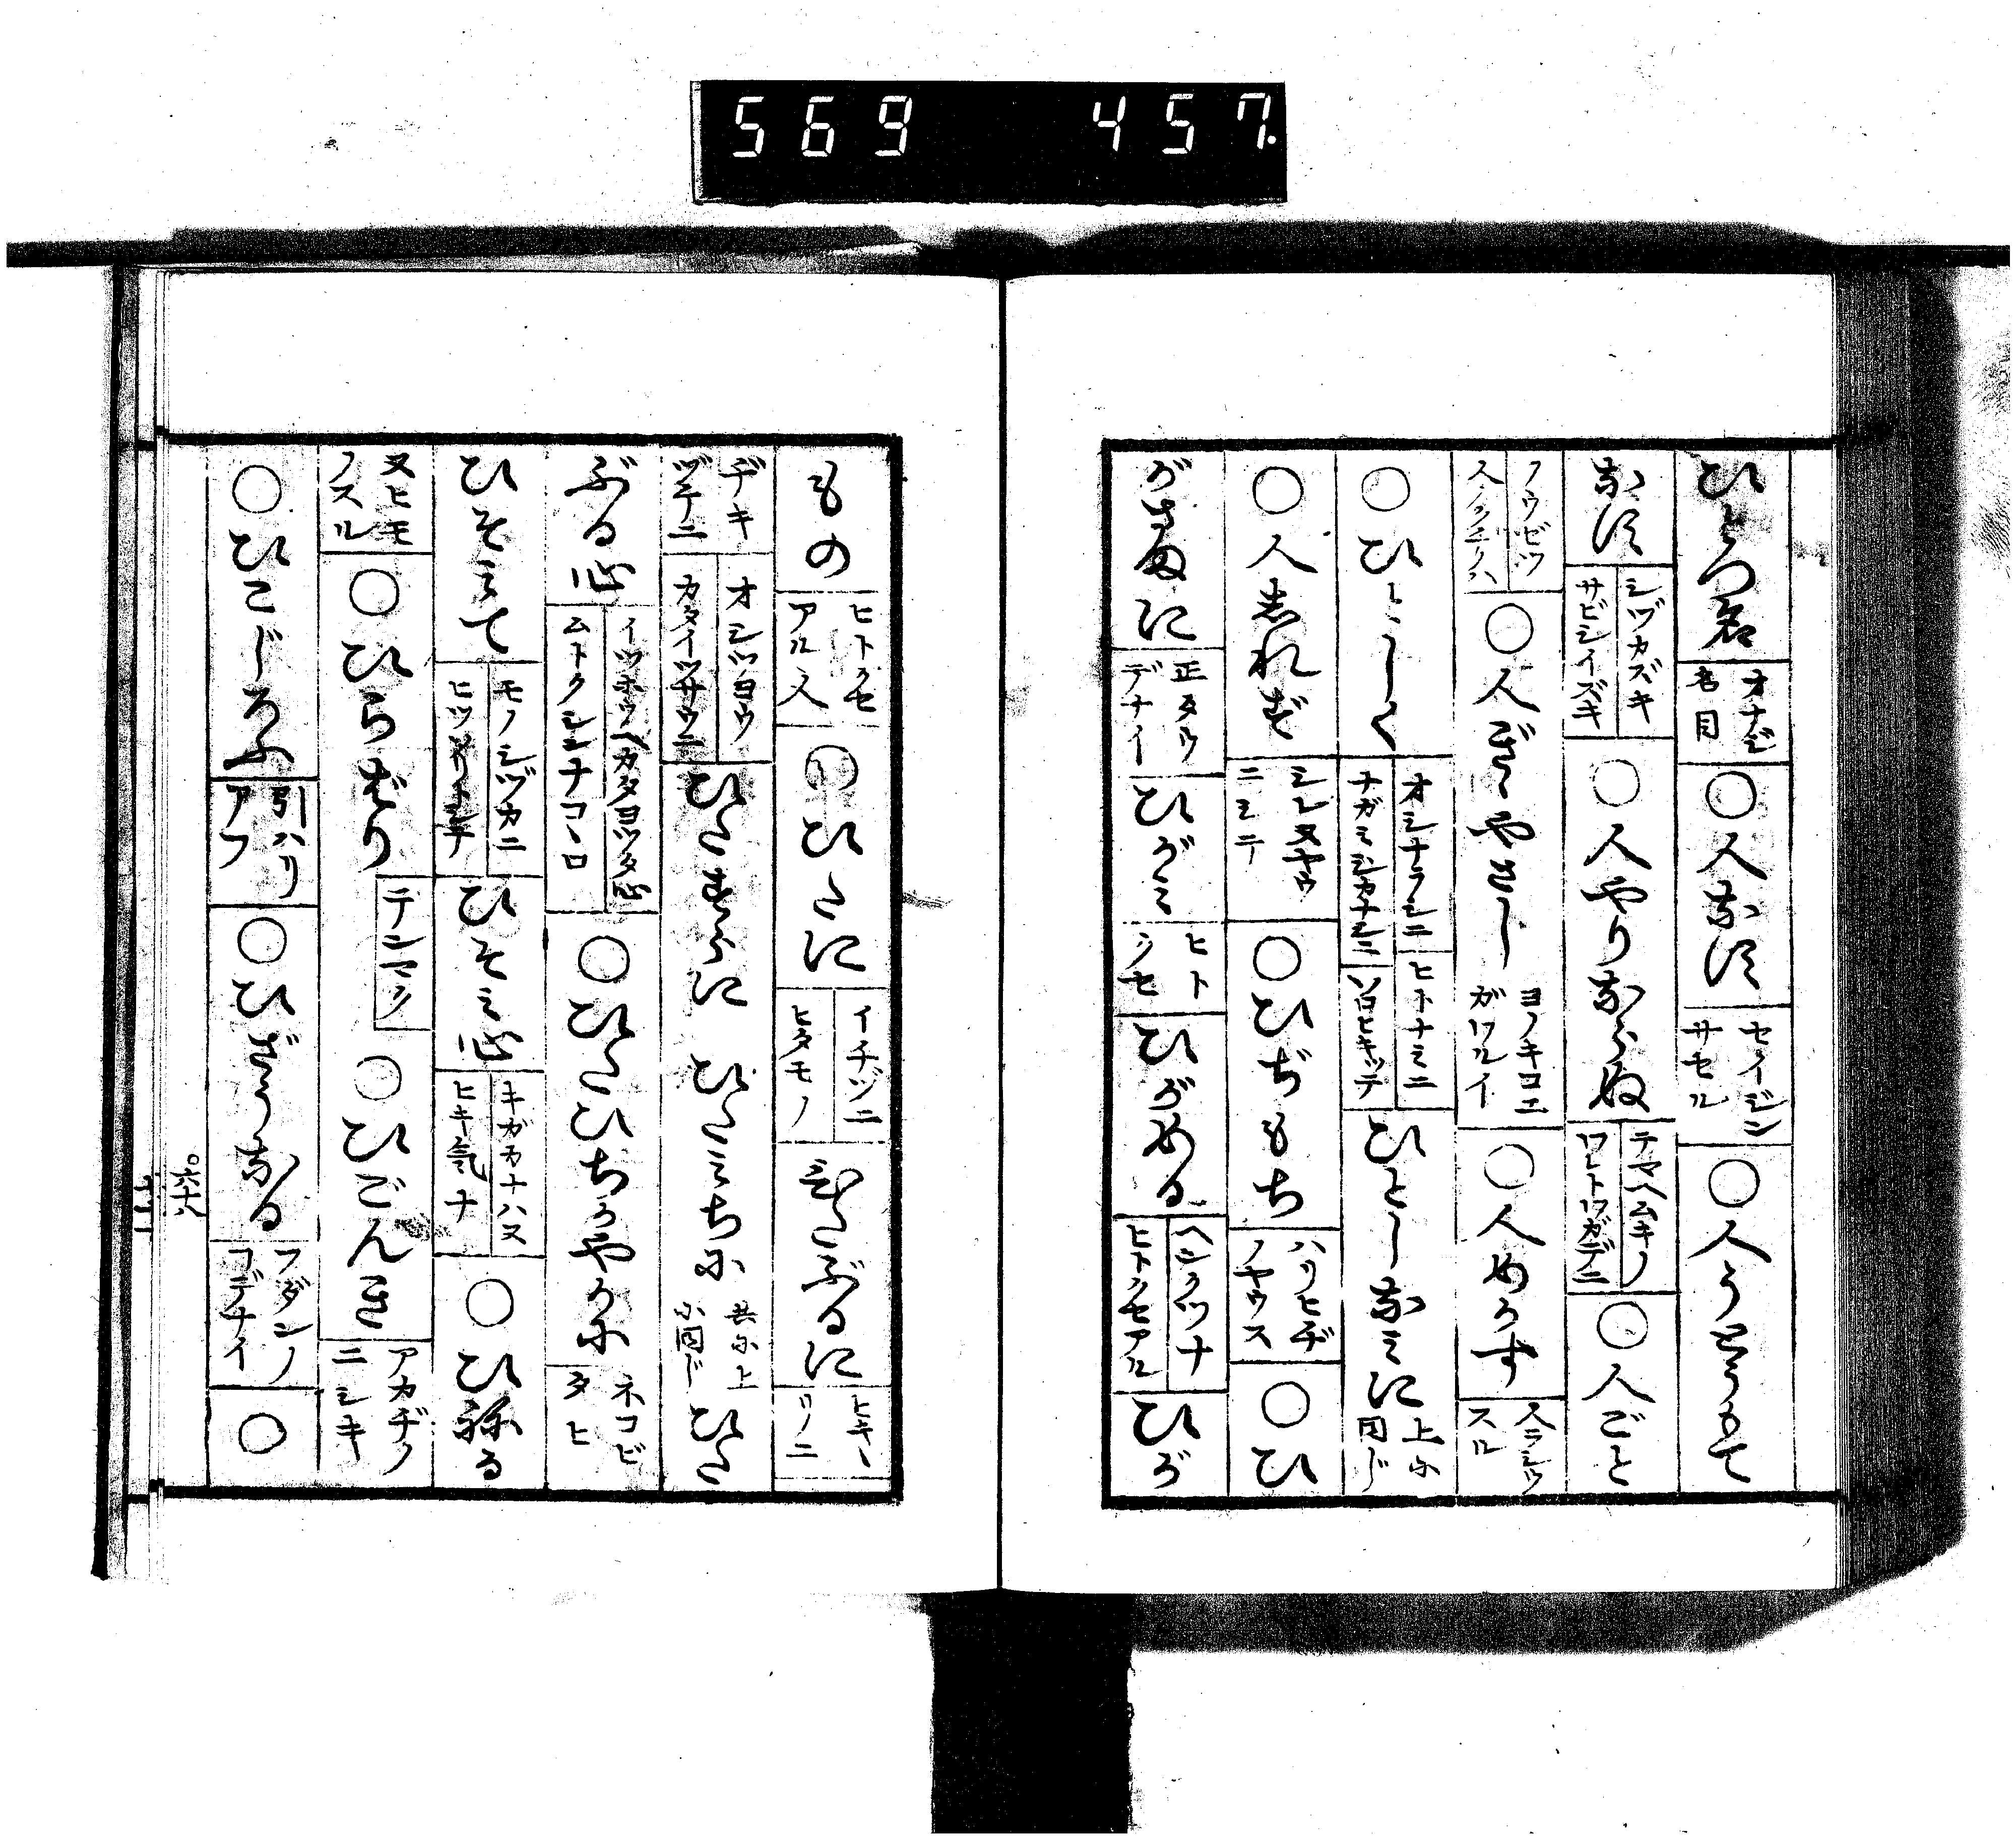 569 457.
ひとつ名 オナジ名目 ○人なす セイジンサセル ○人うとうもて
なす シヅカズキ サビシイズキ ○人やりならぬ テマヘムキノ ワレトワガデニ ○人ごと
ノウビツ ○人ぎゝやさし ヨノキコエガワルイ ○人めかす 人ラシウスル
○ひとしく オシナラシニ ナガミシカナシニ ヒトナミニ ソロヒキッテ ひとしなみに 上に同じ
○人しれず シレヌヤウニシテ ○ひぢもち ハリヒヂノヤウス ○ひ
がさまに 正タウデナイ ひがミ ヒトクセ ひがめる ヘンクツナ ヒトクセアル ひが
もの ヒトクセアル人 ○ひたに イチヅニ ヒタモノ ひたぶるに ヒキ
デキ オシツヨウ カタイツサウニ ひたすらに ひたミちに 共に上に同じ ひた
ぶる心 イツホウヘカタヨツタ心 ムトクシンナコヽロ ○ひたひちゝやかに ネコビタヒ
ひそミて モノシヅカニ ひそミ心 キガカナハヌ ヒキ気ナ ○ひねる
又ヒモノスル ○ひらばり テンマク ○ひごんき アカヂノニシキ
○ひこじろふ 引ハリアフ ○ひざうなる フダンノコデナイ ○
六十八